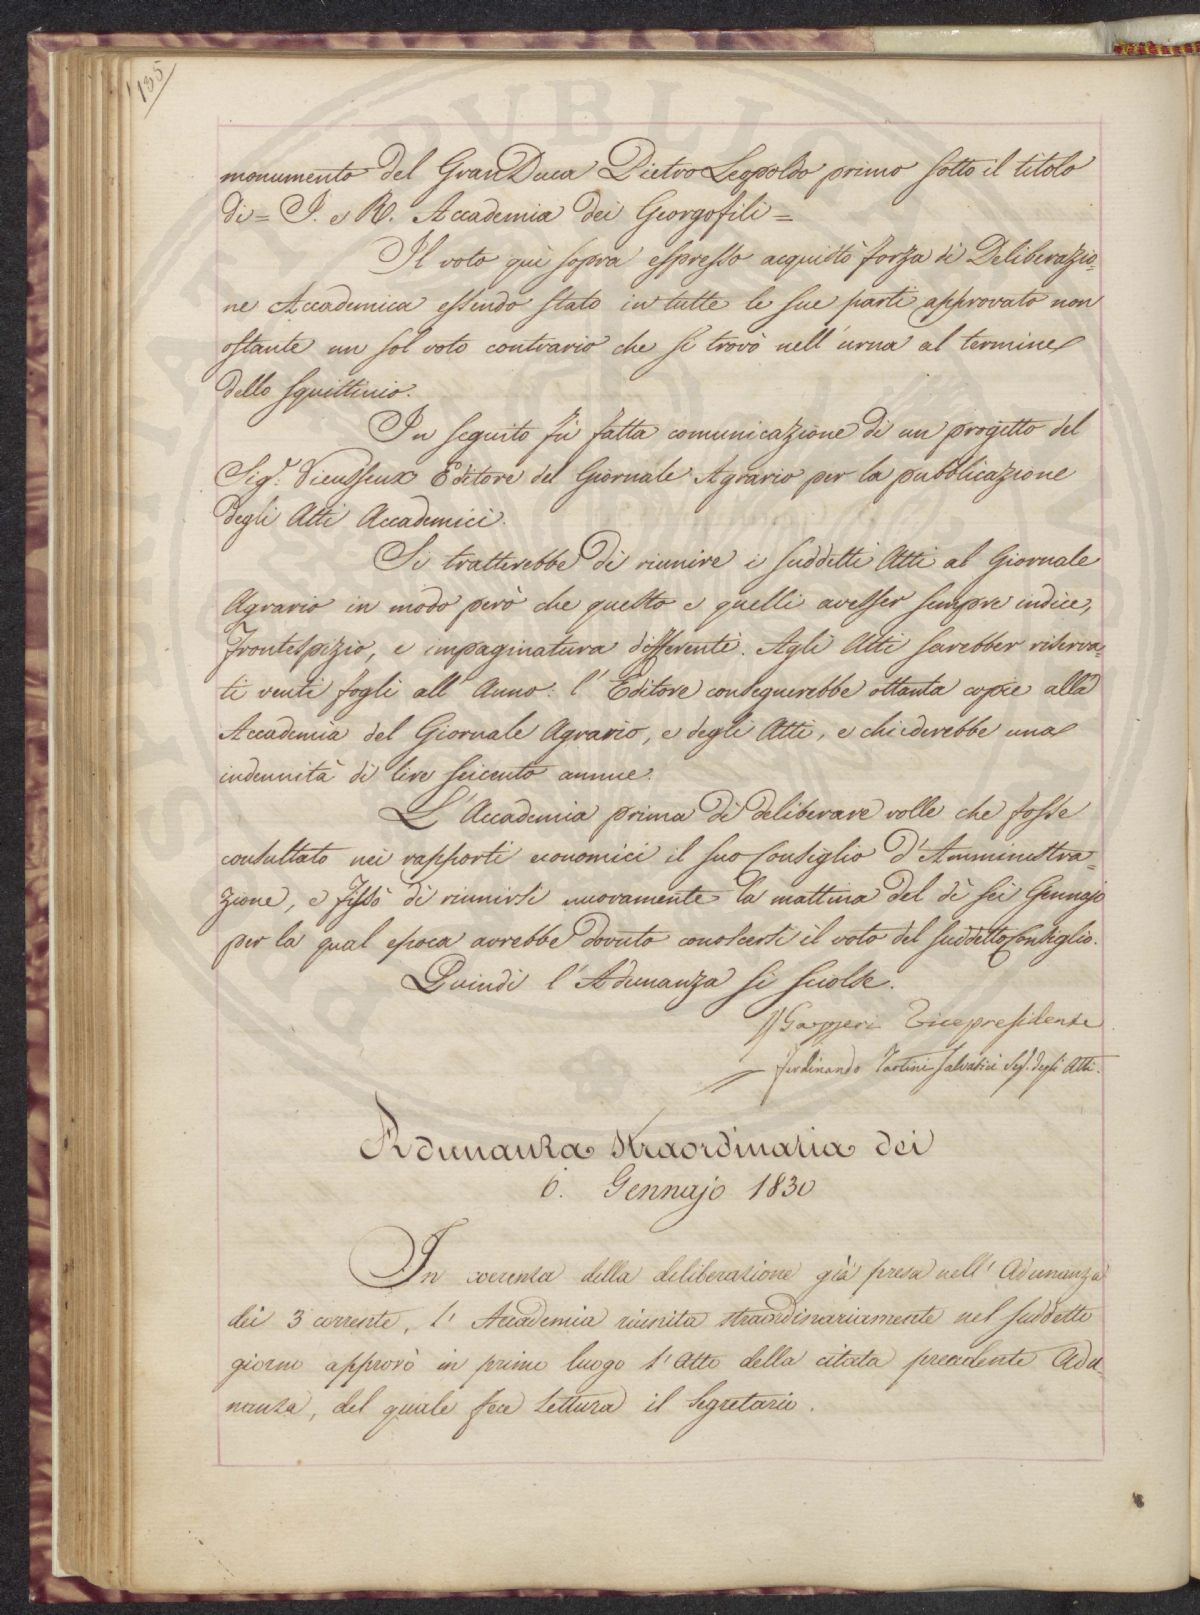 135
monumento del GranDuca Pietro Leopoldo primo sotto il titolo
di = I. e R. Accademia dei Georgofili =
Il voto quì sopra espresso acquistò forza di Deliberazio=
ne Accademica essendo stato in tutte le sue parti approvato non
ostante un sol voto contrario che si trovò nell'urna al termine
dello squittinio.
In seguito fù fatta comunicazione di un progetto del
Sig.r Vieusseux Editore del Giornale Agrario per la pubblicazione
degli Atti Accademici.
Si tratterebbe di riunire i suddetti Atti al Giornale
Agrario in modo però che questo e quelli avesser sempre indice,
frontespizio, e impaginatura differenti. Agli Atti sarebber riserva=
ti venti fogli all'Anno: l'Editore consegnerebbe ottanta copie alla
Accademia del Giornale Agrario, e degli Atti, e chiederebbe una
indennità di lire seicento annue.
L'Accademia prima di deliberare volle che fosse
consultato nei rapporti economici il suo Consiglio d'Amministra=
zione, e fissò di riunirsi nuovamente la mattina del dì sei Gennajo
per la qual epoca avrebbe dovuto conoscersi il voto del suddetto Consiglio.
Quindi l'Adunanza si sciolse.
Gazzeri Vicepresidente
Ferdinando Tartini Salvatici Seg. degli Atti.
Adunanza straordinaria dei
6. Gennajo 1830
In coerenza della deliberazione già presa nell'Adunanza
dei 3 corrente, l'Accademia riunita straordinariamente nel suddetto
giorno approvò in primo luogo l'Atto della citata precedente Adu=
nanza, del quale fece lettura il Segretario.